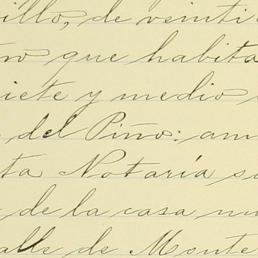 illo, de veinti
ro que habita
iete y medio
del Pino: am
ta Notaría s
de la casa nu
alle de Monte